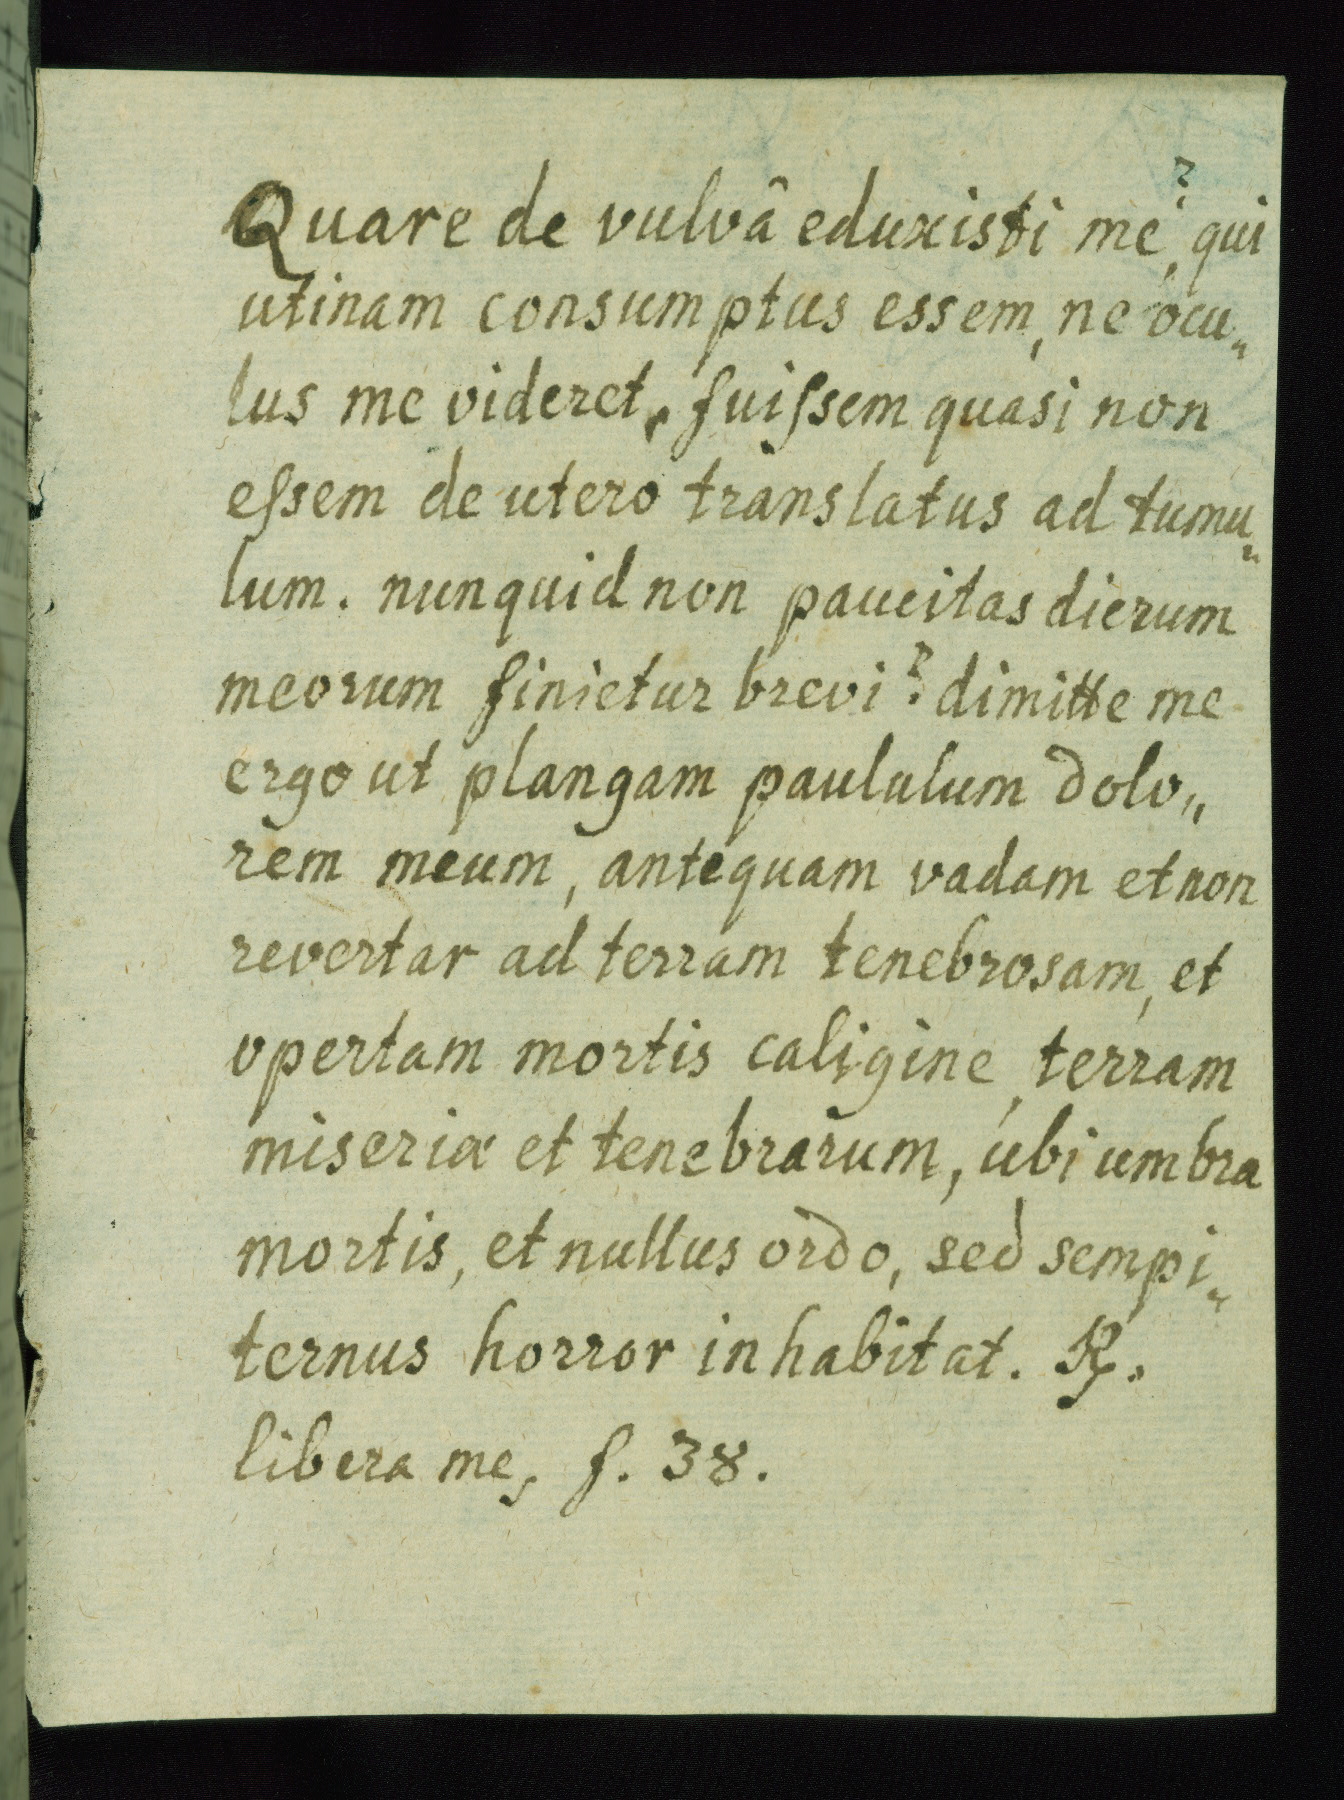 Quare de vulvâ eduxisti me?, qui
utinam consumptus essem, ne ocu„
lus me videret, fuiſsem quasi non
eſsem de utero translatus ad tumu„
lum. nunquid non paucitas dierum
meorum finietur brevi? dimitte me
ergo ut plangam paululum dolo„
rem meum, antequam vadam et non
revertar ad terram tenebrosam, et
opertam mortis caligine, terram
miseriæ et tenebrarum, ubi umbra
mortis, et nullus ordo, sed sempi„
ternus horror inhabitat. ℟.
libera me, f. 38.